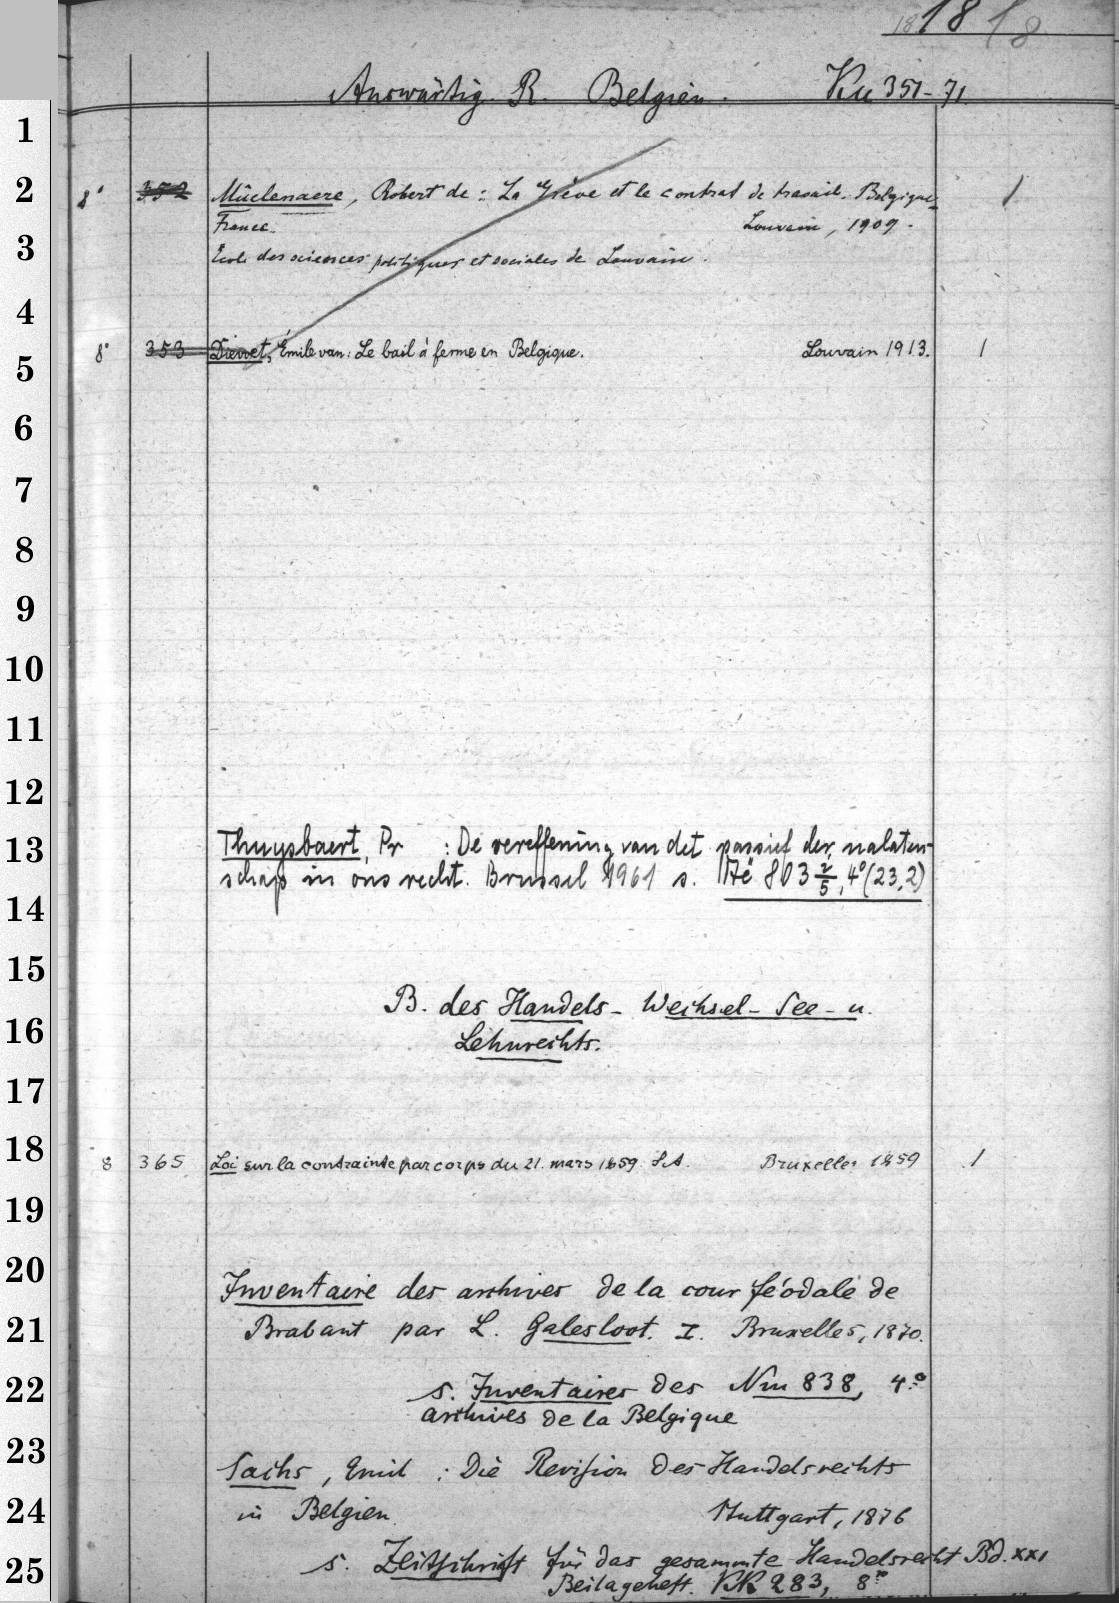 18 18
Auswärtig. R. Belgien. Ku 351-71.
8° 352 Mûelenaere, Robert de: La Grève et le contrat de travail. Belgique- 1
France. Louvain, 1909.
École des sciences politiques et sociales de Louvain.
8° 353 Dievoet, Émile van: Le bail à ferme en Belgique. Louvain 1913. 1
Thuysbaert, Pr : De vereffening van det passief der nalaten-
schap in ons recht. Brussel 1961 s. 803 2/5, 4° (23,2)
B. des Handels- Wechsel- See- u.
Lehnrechts.
8 365 Loi sur la contrainte par corps du 21. mars 1859. S.A. Bruxelles 1859 1
Inventaire des archives de la cour féodale de
Brabant par L. Galesloot. I. Bruxelles, 1870.
s. Inventaires des Nm 838, 4.°
archives de la Belgique
Sachs, Emil : Die Revision des Handelsrechts
in Belgien. Stuttgart, 1876
s. Zeitschrift für das gesammte Handelsrecht Bd. XXI
Beilageheft. KK 283, 8°
1
2
3
4
5
6
7
8
9
10
11
12
13
14
15
16
17
18
19
20
21
22
23
24
25